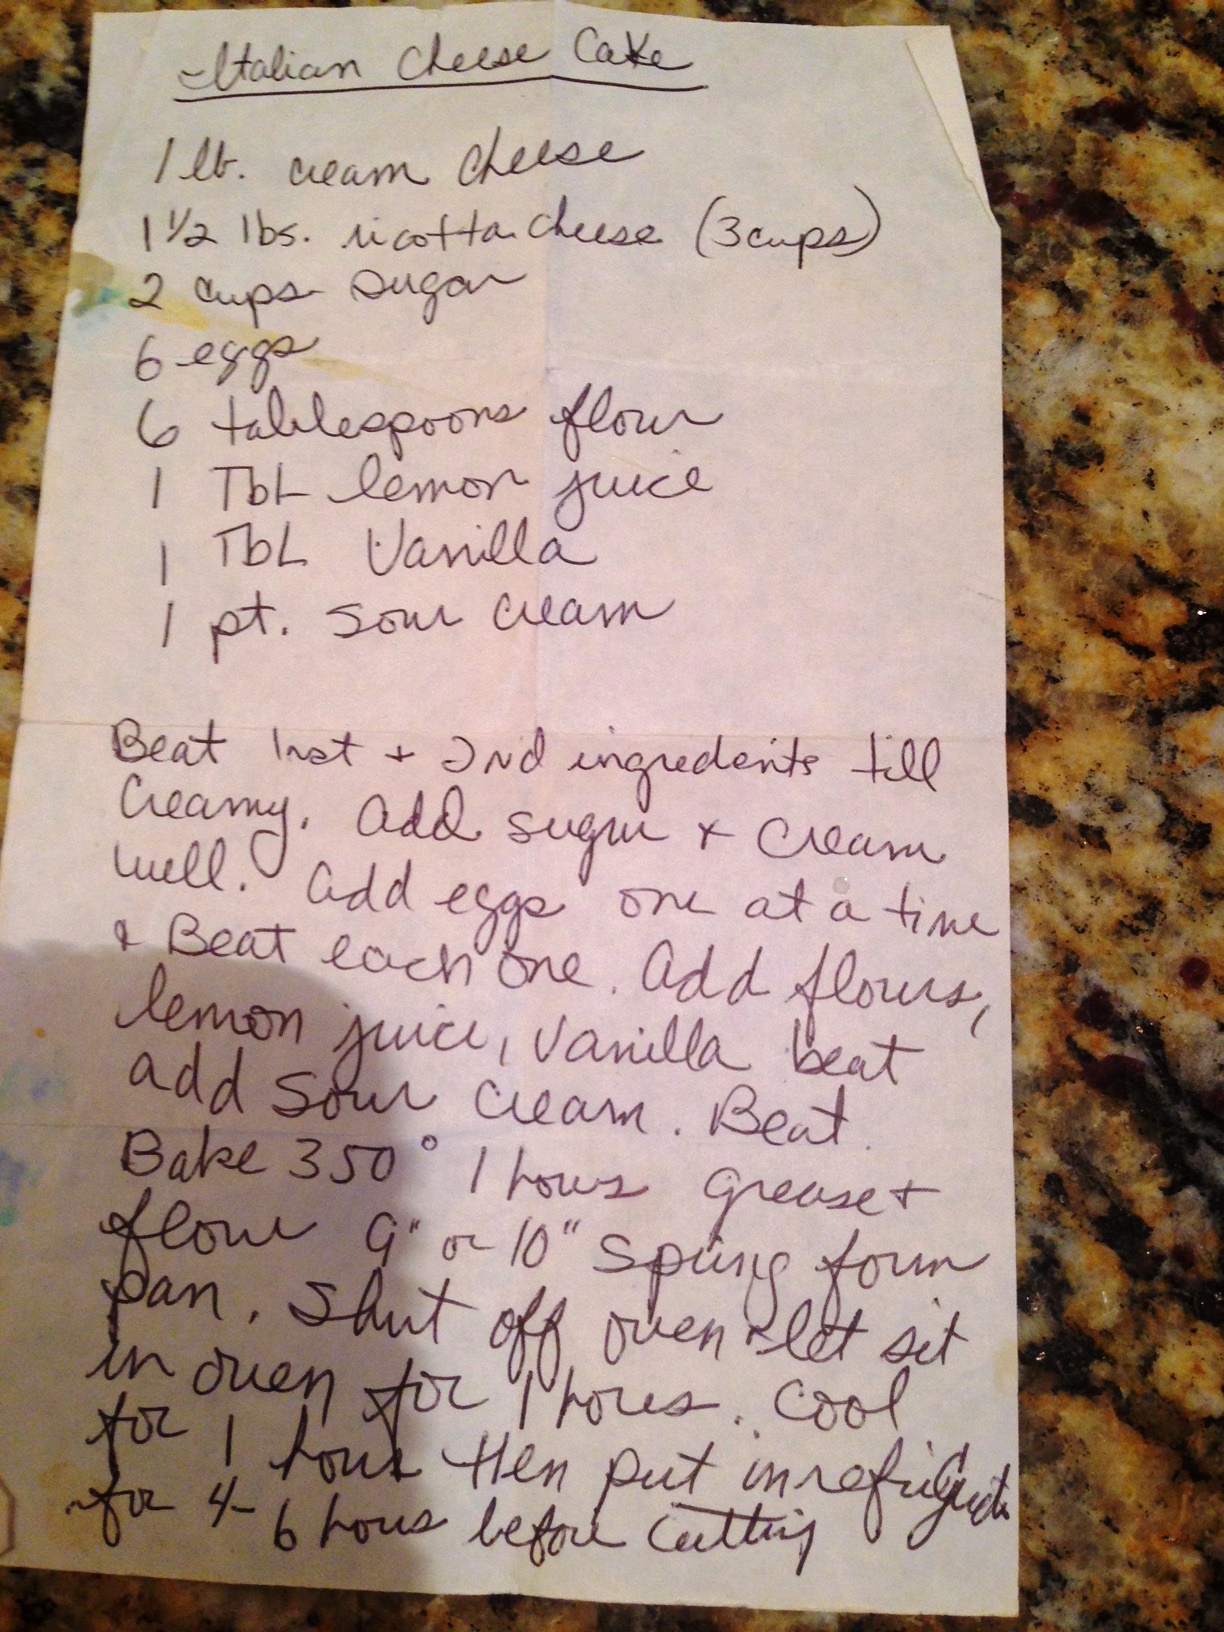 Italian Cheese Cake
1 lb. cream cheese
1 1/2 lbs. ricotta cheese (3 cups)
2 cups sugar
6 eggs
6 tablespoons flour
1 Tbl lemon juice
1 Tbl Vanilla
1 pt. sour cream
Beat 1nst + 2nd ingredients till
creamy, add sugar + cream
well. add eggs one at a time
+ Beat each one. Add flours,
lemon juice, Vanilla beat
add sour cream. Beat
Bake 350° 1 hour grease +
flour 9" or 10" spring form
pan. Shut off oven + let sit
in oven for 1 hour. Cool
for 1 hour then put in
for 4-6 hours before cutting